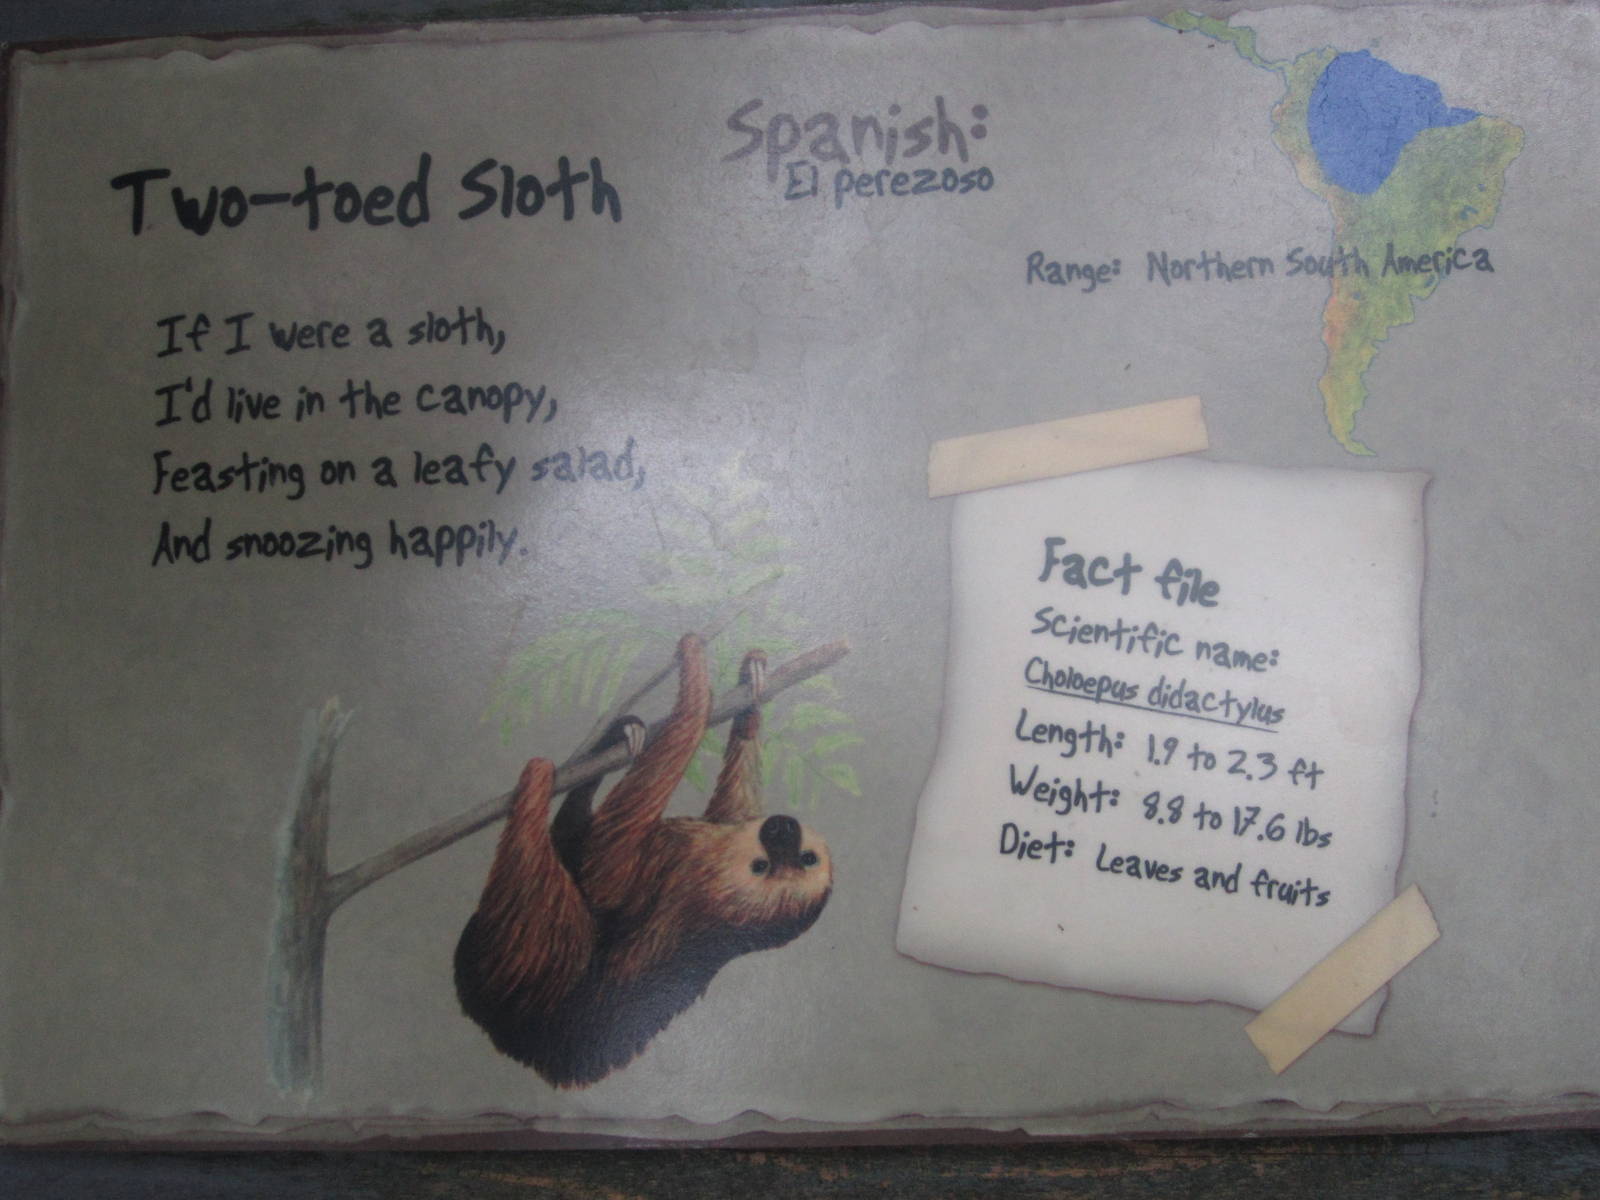 Two-toed Sloth
Spanish:
El perezoso
Range: Northern South America
If I were a sloth,
I'd live in the canopy,
Feasting on a leafy salad,
And snoozing happily.
Fact file
Scientific name:
Choloepus didactylus
Length: 1.9 to 2.3 ft
Weight: 8.8 to 17.6 lbs
Diet: Leaves and fruits